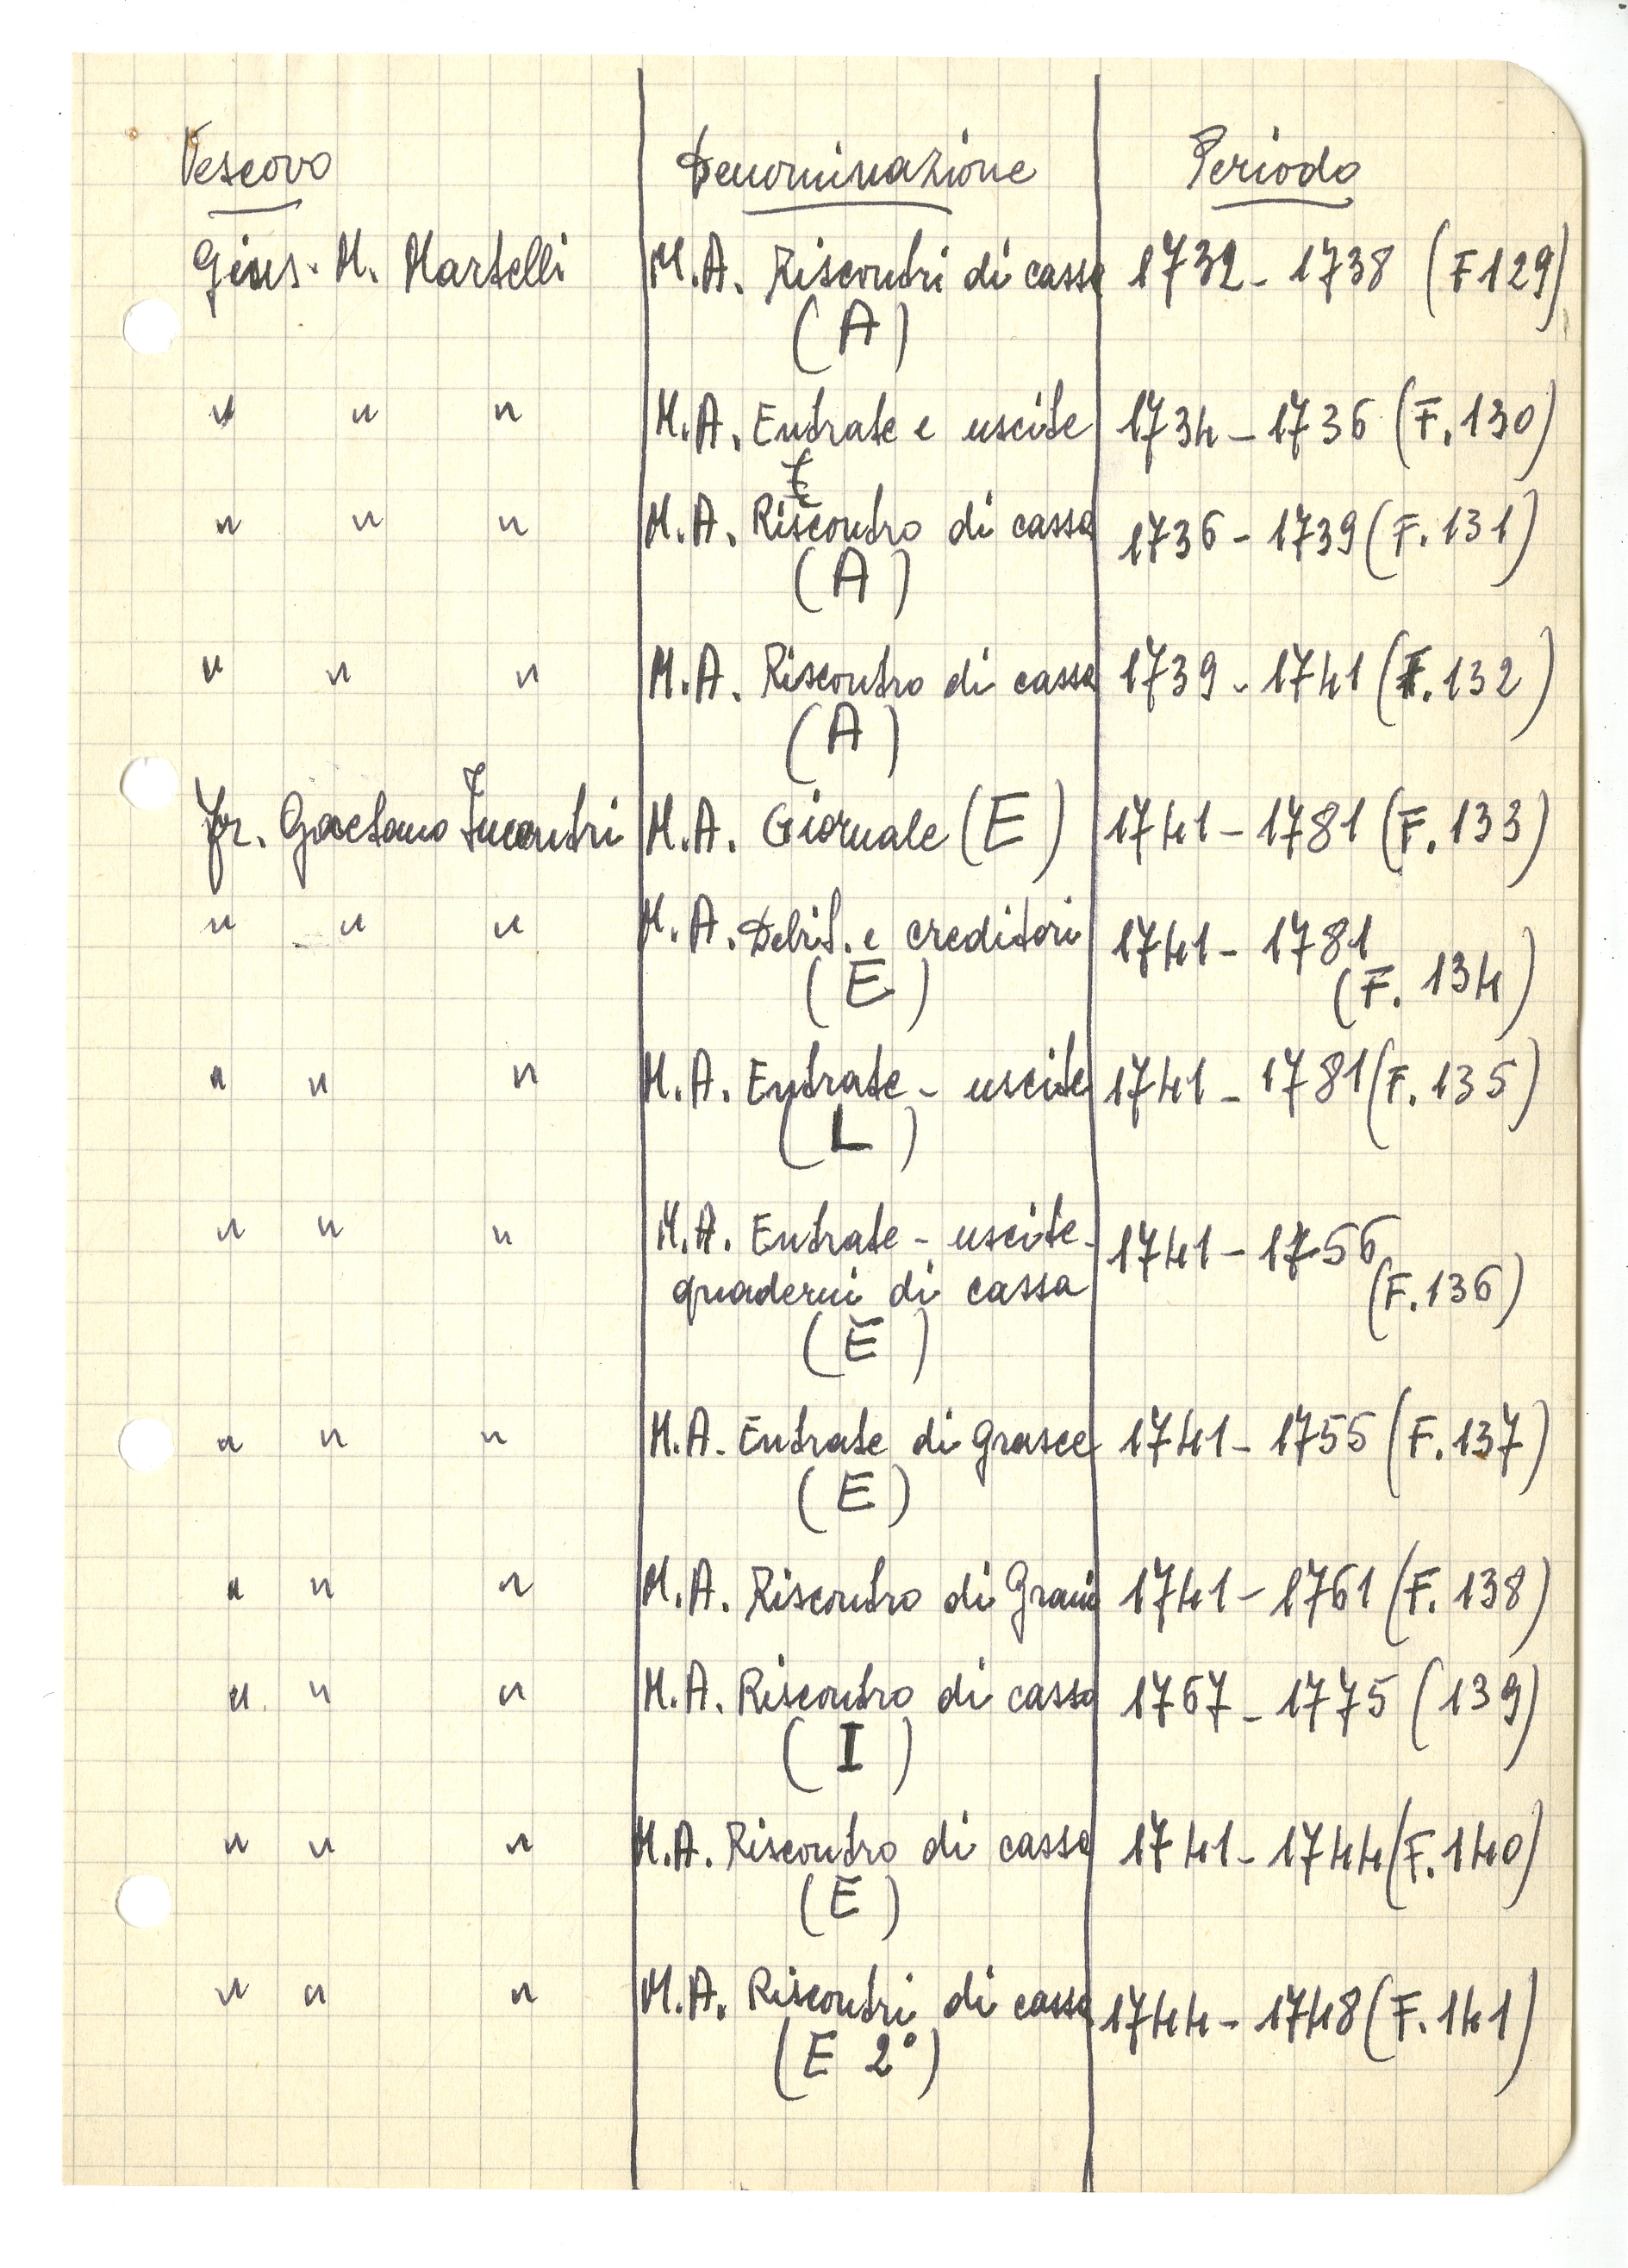 Vescovo Denominazione Periodo
Gius. M. Martelli M.A. Riscontri di cassa 1732 - 1738 (F 129)
(A)
" " " M.A. Entrate e uscite 1734 - 1736 (F. 130)
E
" " " M.A. Riscontro di cassa 1736 - 1739 (F. 131)
(A)
" " " M.A. Riscontro di cassa 1739 - 1741 (F. 132)
(A)
Fr. Gaetano Incontri M.A. Giornale (E) 1741 - 1781 (F. 133)
" " " M.A. Debit. e creditori 1741 - 1781
(E) (F. 134)
" " " M.A. Entrate - uscite 1741 - 1781 (F. 135)
(L)
" " " M.A. Entrate - uscite - 1741 - 1756
quaderni di cassa (F. 136)
(E)
" " " M.A. Entrate di Grasce 1741 - 1755 (F. 137)
(E)
" " " M.A. Riscontro di Grani 1741 - 1761 (F. 138)
" " " M.A. Riscontro di cassa 1767 - 1775 (139)
(I)
" " " M.A. Riscontro di cassa 1741 - 1744 (F. 140)
(E)
" " " M.A. Riscontri di cassa 1744 - 1748 (F. 141)
(E 2°)